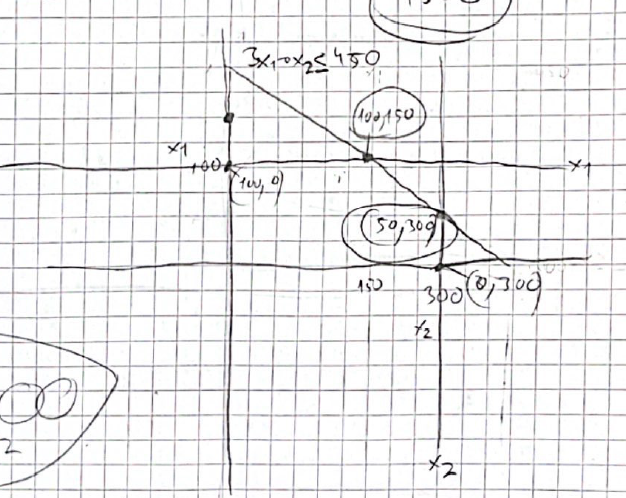 3x₁+x₂≤450
100,150
x1
100
x1
(100,0)
(50,300)
150
300
(0,300)
x2
x2
2